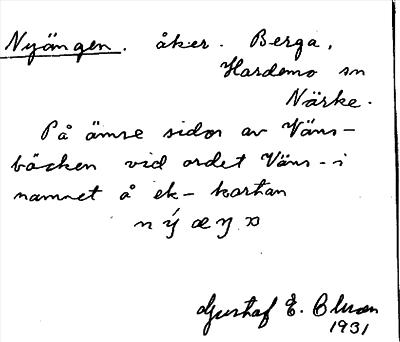 Nyängen. åker. Berga,
Hardemo sn
Närke.
På ömse sidor av Väns-
bäcken vid ordet Väns- i
namnet å ek-kartan
Gustaf E.
1931